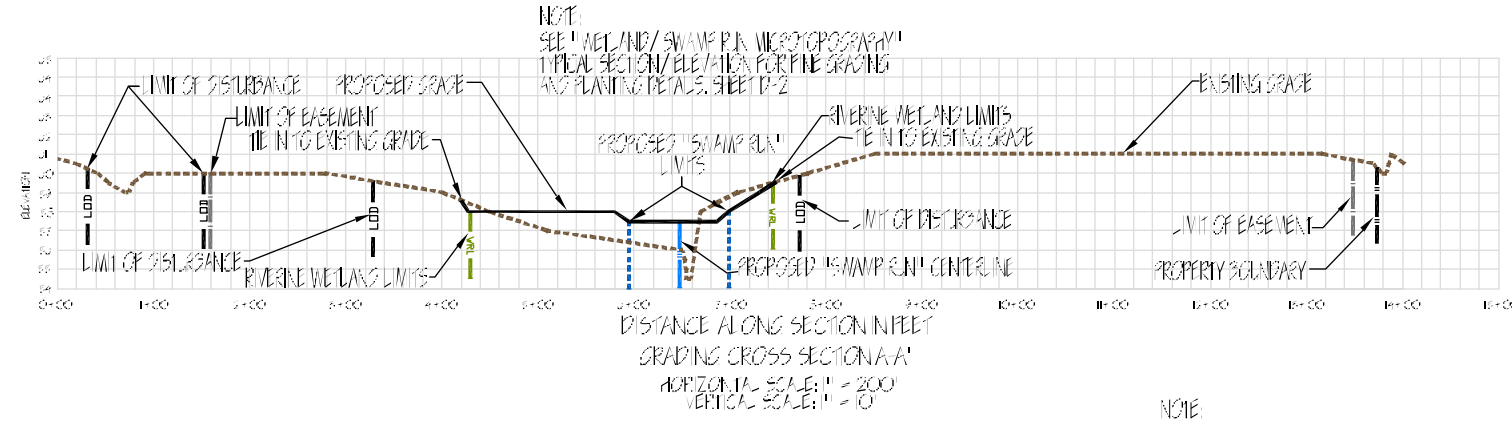 NOTE:
SEE "WETLAND/ SWAMP RUN MICROTOPOGRAPHY"
TYPICAL SECTION/ ELEVATION FOR FINE GRADING
AND PLANTING DETAILS. SHEET D-2
LIMIT OF DISTURBANCE
PROPOSED GRADE
EXISTING GRADE
LIMIT OF EASEMENT
RIVERINE WETLAND LIMITS
TIE IN TO EXISTING GRADE
PROPOSED "SWAMP RUN"
LIMITS
TIE IN TO EXISTING GRADE
ELEVATION
LOD
LOD
LOD
LOD
WRL
WRL
LIMIT OF DISTURBANCE
LIMIT OF EASEMENT
LIMIT OF DISTURBANCE
RIVERINE WETLAND LIMITS
PROPOSED "SWAMP RUN" CENTERLINE
PROPERTY BOUNDARY
0+00 1+00 2+00 3+00 4+00 5+00 6+00 7+00 8+00 9+00 10+00 11+00 12+00 13+00 14+00 15+00
DISTANCE ALONG SECTION IN FEET
GRADING CROSS SECTION A-A'
HORIZONTAL SCALE: 1" = 200'
VERTICAL SCALE: 1" = 10'
NOTE: